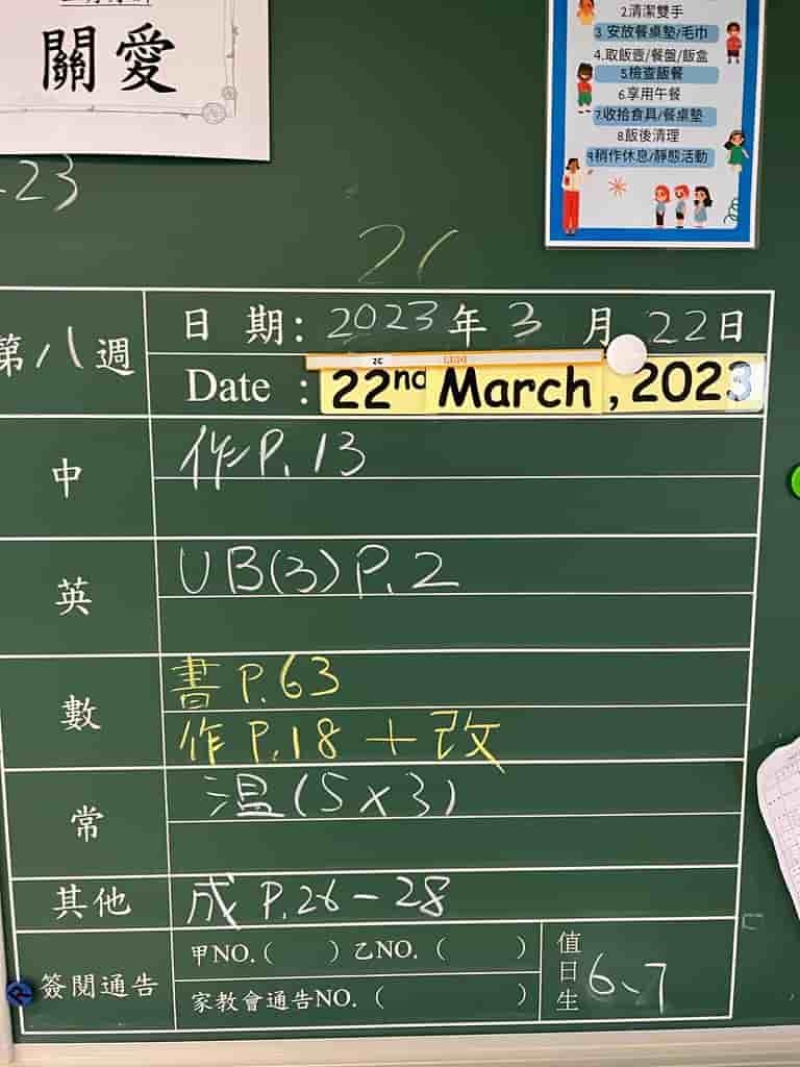 關愛
2.清潔雙手
3.安放餐桌墊/毛巾
4.取飯壺/餐盤/飯盒
5.檢查飯餐
6.享用午餐
7.收拾食具/餐桌墊
8.飯後清理
9.稍作休息/靜態活動
23
2C
第八週
日期: 2023年3月22日
2C
Date : 22nd March, 2023
中
作P.13
英
UB(3)P.2
數
書P.63
作P.18+改
常
溫(5x3)
其他
成P.26-28
簽閱通告
甲NO.( ) 乙NO.( )
家教會通告NO.( )
值日生
6、7